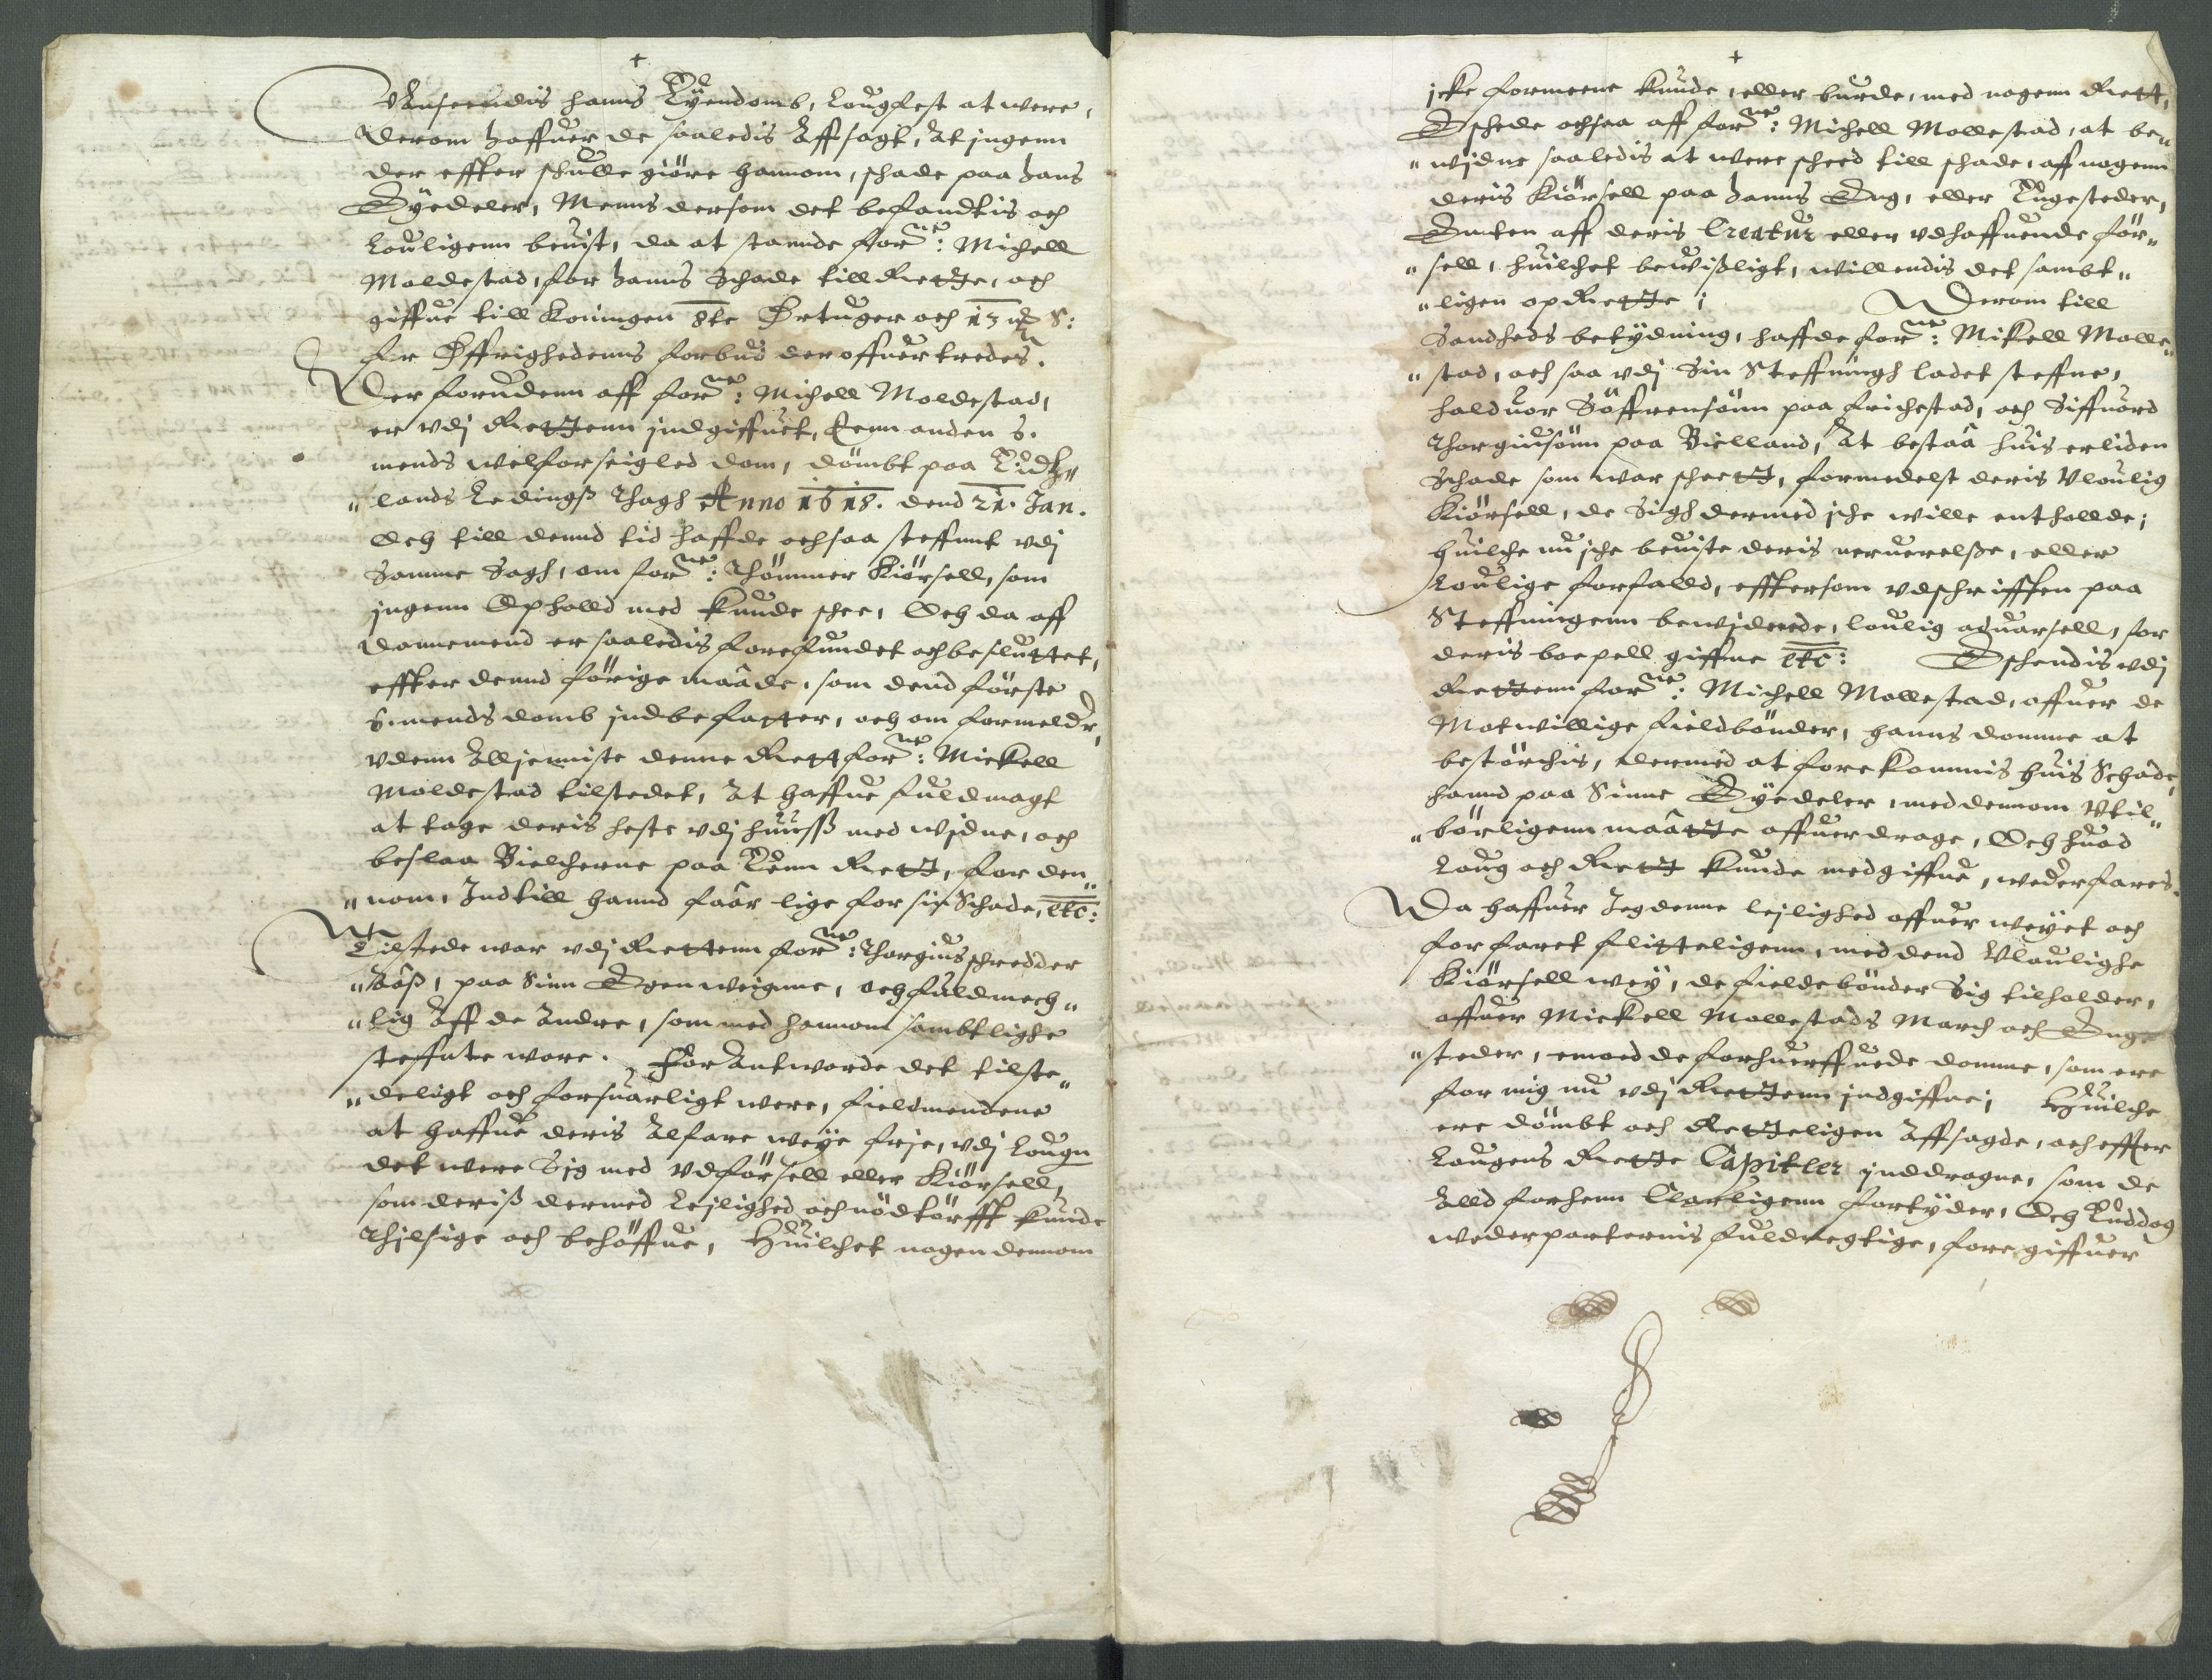 Anseendis hanns Eÿendomb, lougfest at were,
Derom haffuer de saaledis Affsagt, At jngenn
der effter schulle giöre hannom, schade paa hans
Eÿedeler, Menns dersom det befandtis och
louligenn beuist, da at stannde forne: Michell
Moldestad, for hanns Schade till Rette, och
giffue till Koningen 8te Ørtuger och 13 S:
for Øffrighedenns forbud der offuertredes.
Der forudenn aff forne: Michell Moldestad,
er vdj Rettenn jndgiffuet, Eenn anden 6.
mends welforseigled dom, dömbt paa
lands Ledingß Thagh Anno 1618. dend 21. Jan.
Och till dennd tid haffde ochsaa steffnnt vdj
Samme Sagh, om forne: Thömmer Kiörsell, som
jngenn Opholld med kunde schee, Och da aff
Dannemend er saaledis forefundet och besluttet,
effter dennd förige maade, som dend förste
6. mends domb jndbefatter, och om formelder,
vdenn Alljenniste denne Rett forne: Mickell
Moldestad tilstedet, At haffue fuldmagt
at tage deris heste vdj huuß med widne, och
beslaa Bielckerne paa Eenn Rett, for den„
„nom, Indtill hannd faar lige for sin Schade, etc:
Tilstede war vdj Rettenn forne: Thorgius schredder
„Aaß, paa Sinn Egen weignne, och fuldmech„
„tig Aff de Andre, som med hannom sambtlighe
steffnte ware. For Antworde det tilste„
„deligt och forsuarligt were, fieldmendene
at haffue deris Alfare weÿe frje, vdj lougn
det were Sig med vdförsell eller Kiörsell,
som deriß dermed Lejlighed och nödtörfft kunde
Thilsige och behöffue, Huilchet nogen dennom
jcke formeene kunde, eller burde, med nogenn Rett,
Eschede ochsaa aff forne: Michell Mollestad, at be„
„widne saaledis at were scheed till schade, aff nogenn
deris Kiörsell paa hanns Eng, eller Engesteder,
Enten aff deris Creatur eller vdhaffuende för„
„sell, huilchet bewißligt, willendis det sambt„
„ligen oprette; Derom till
Sandheds betÿdning, haffde forne: Mikell Molle„
„stad, och saa vdj Sin Steffningh ladet steffne,
halduor Söffrensönn paa frichestad, och Siffuord
Thorgiusönn paa Bielland, At bestaa huis erliden
Schade som war scheett, formedelst deris Vloulig
Kiörsell, de Sigh dermed jche wille entholde;
Huilche nu jche beuiste deris neruerelße, eller
Loulige forfalld, efftersom vdschrifften paa
Steffningenn bewidnede, loulig aduarsell, for
deris boepell giffne etc: Eschendis vdj
Rettenn forne: Michell Mollestad, offuer de
Motwillige fieldbönder, hanns domme at
bestörchis, dermed at forekommis huis Schade,
hannd paa Sinne Eÿedeler, med dennom Vtil„
„börligenn maatte offuerdrage, Och huad
Loug och Rett kunde medgiffue, wederfares.
Da haffuer Jeg denne lejlighed offuer weÿet och
forfaret flitteligenn, med dend Vlaulighe
Kiörsell weÿ, de fieldebönder Sig tilholder,
offuer Mickell Mollestads March och Enge
„steder, emoed de forhuerffuede domme, som ere
for mig nu vdj Rettenn jndgiffne; Huilche
ere dömbt och Retteligen Affsagde, och effter
Lougens Rette Capitler jnddragne, som de
Alld forhenn Clarligenn fortÿder, Och Enddog
wederparternis fuldmegtige, fore giffuer